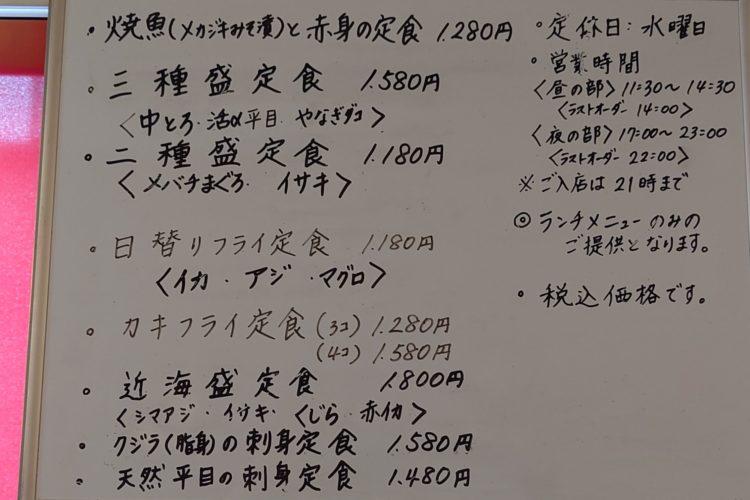 ・焼魚(メカジキみそ漬)と赤身の定食 1.280円
。三種盛定食 1.580円
〈中とろ・活〆平目 やなぎダコ〉
・二種盛定食 1.180円
〈メバチまぐろ イサキ〉
・日替りフライ定食 1.180円
〈イカ・アジ・マグロ〉
。カキフライ定食(3コ) 1.280円
(4コ) 1.580円
。近海盛定食 1.800円
〈シマアジ・イサキ・くじら・赤イカ〉
・クジラ(脂身)の刺身定食 1.580円
・天然平目の刺身定食 1.480円
・定休日:水曜日
・営業時間
〈昼の部〉11:30〜14:30
〈ラストオーダー 14:00〉
〈夜の部〉17:00〜23:00
〈ラストオーダー 22:00〉
※ご入店は21時まで
◎ランチメニューのみの
ご提供となります。
・税込価格です。